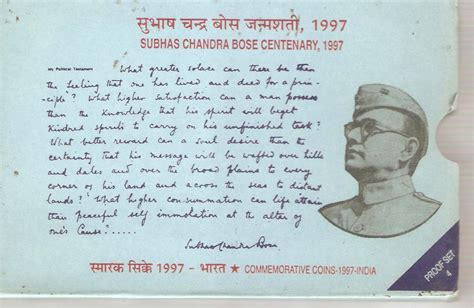 सुभाष चन्द्र बोस जन्मशती, 1997
SUBHAS CHANDRA BOSE CENTENARY, 1997
My Political Testament
What greater solace can there be than
the feeling that one has lived and died for a prin-
ciple? What higher satisfaction can a man possess
than the knowledge that his spirit will beget
kindred spirits to carry on his unfinished task?
What better reward can a soul desire than the
certainty that his message will be wafted over hills
and dales and over the broad plains to every
corner of his land and across the seas to distant
lands? What higher consummation can life attain
than peaceful self immolation at the altar of
one's Cause?.....
Subhas Chandra Bose
स्मारक सिक्के 1997 - भारत ★ COMMEMORATIVE COINS-1997-INDIA
PROOF SET
4